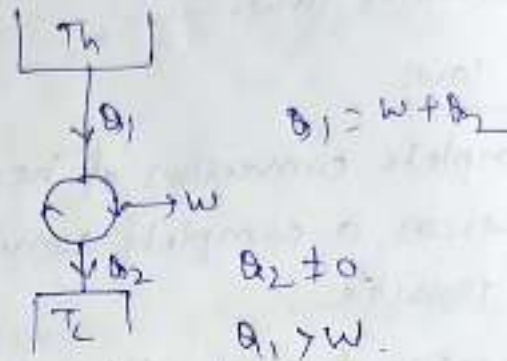 Th
Q1
Q1 = W + Q2
W
Q2
Q2 ≠ 0.
TL
Q1 > W.